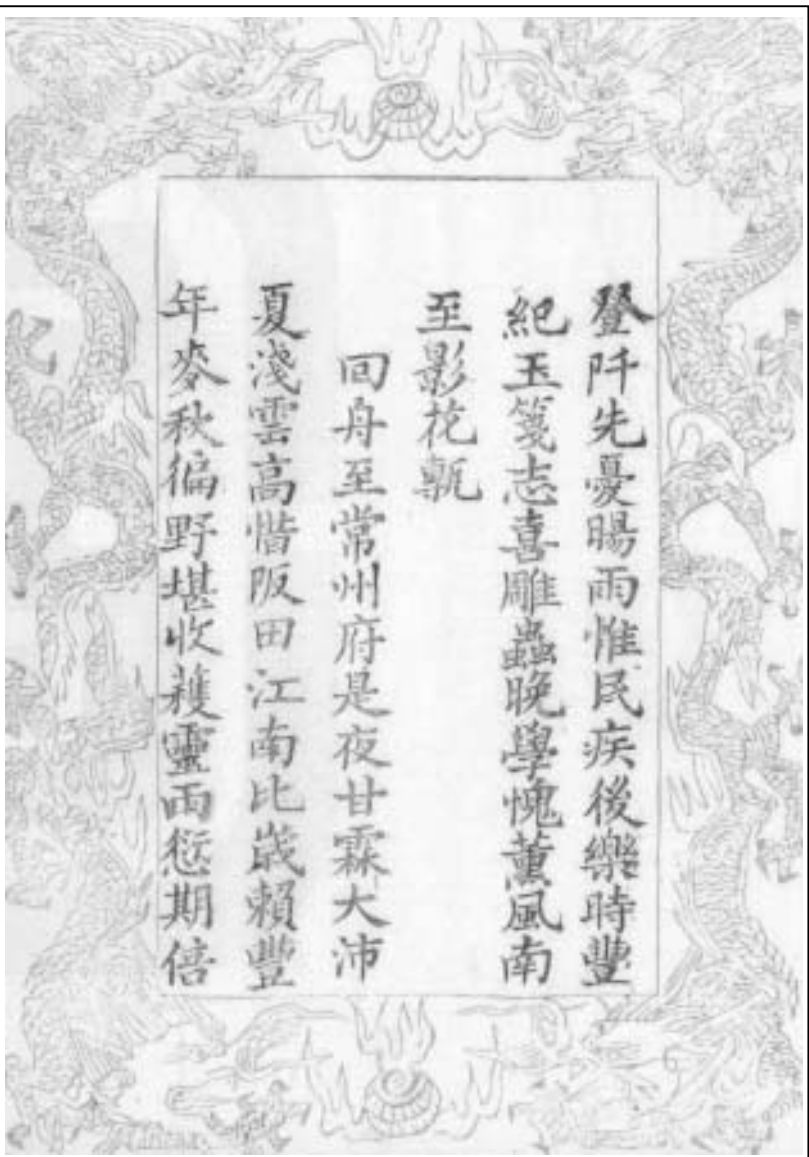 登阡先憂暘雨惟民疾後樂時豐
紀玉箋志喜雕蟲晚學愧薰風南
至影花甎
回舟至常州府是夜甘霖大沛
夏淺雲高惜阪田江南比歲賴豐
年麥秋徧野堪收穫靈雨愆期倍